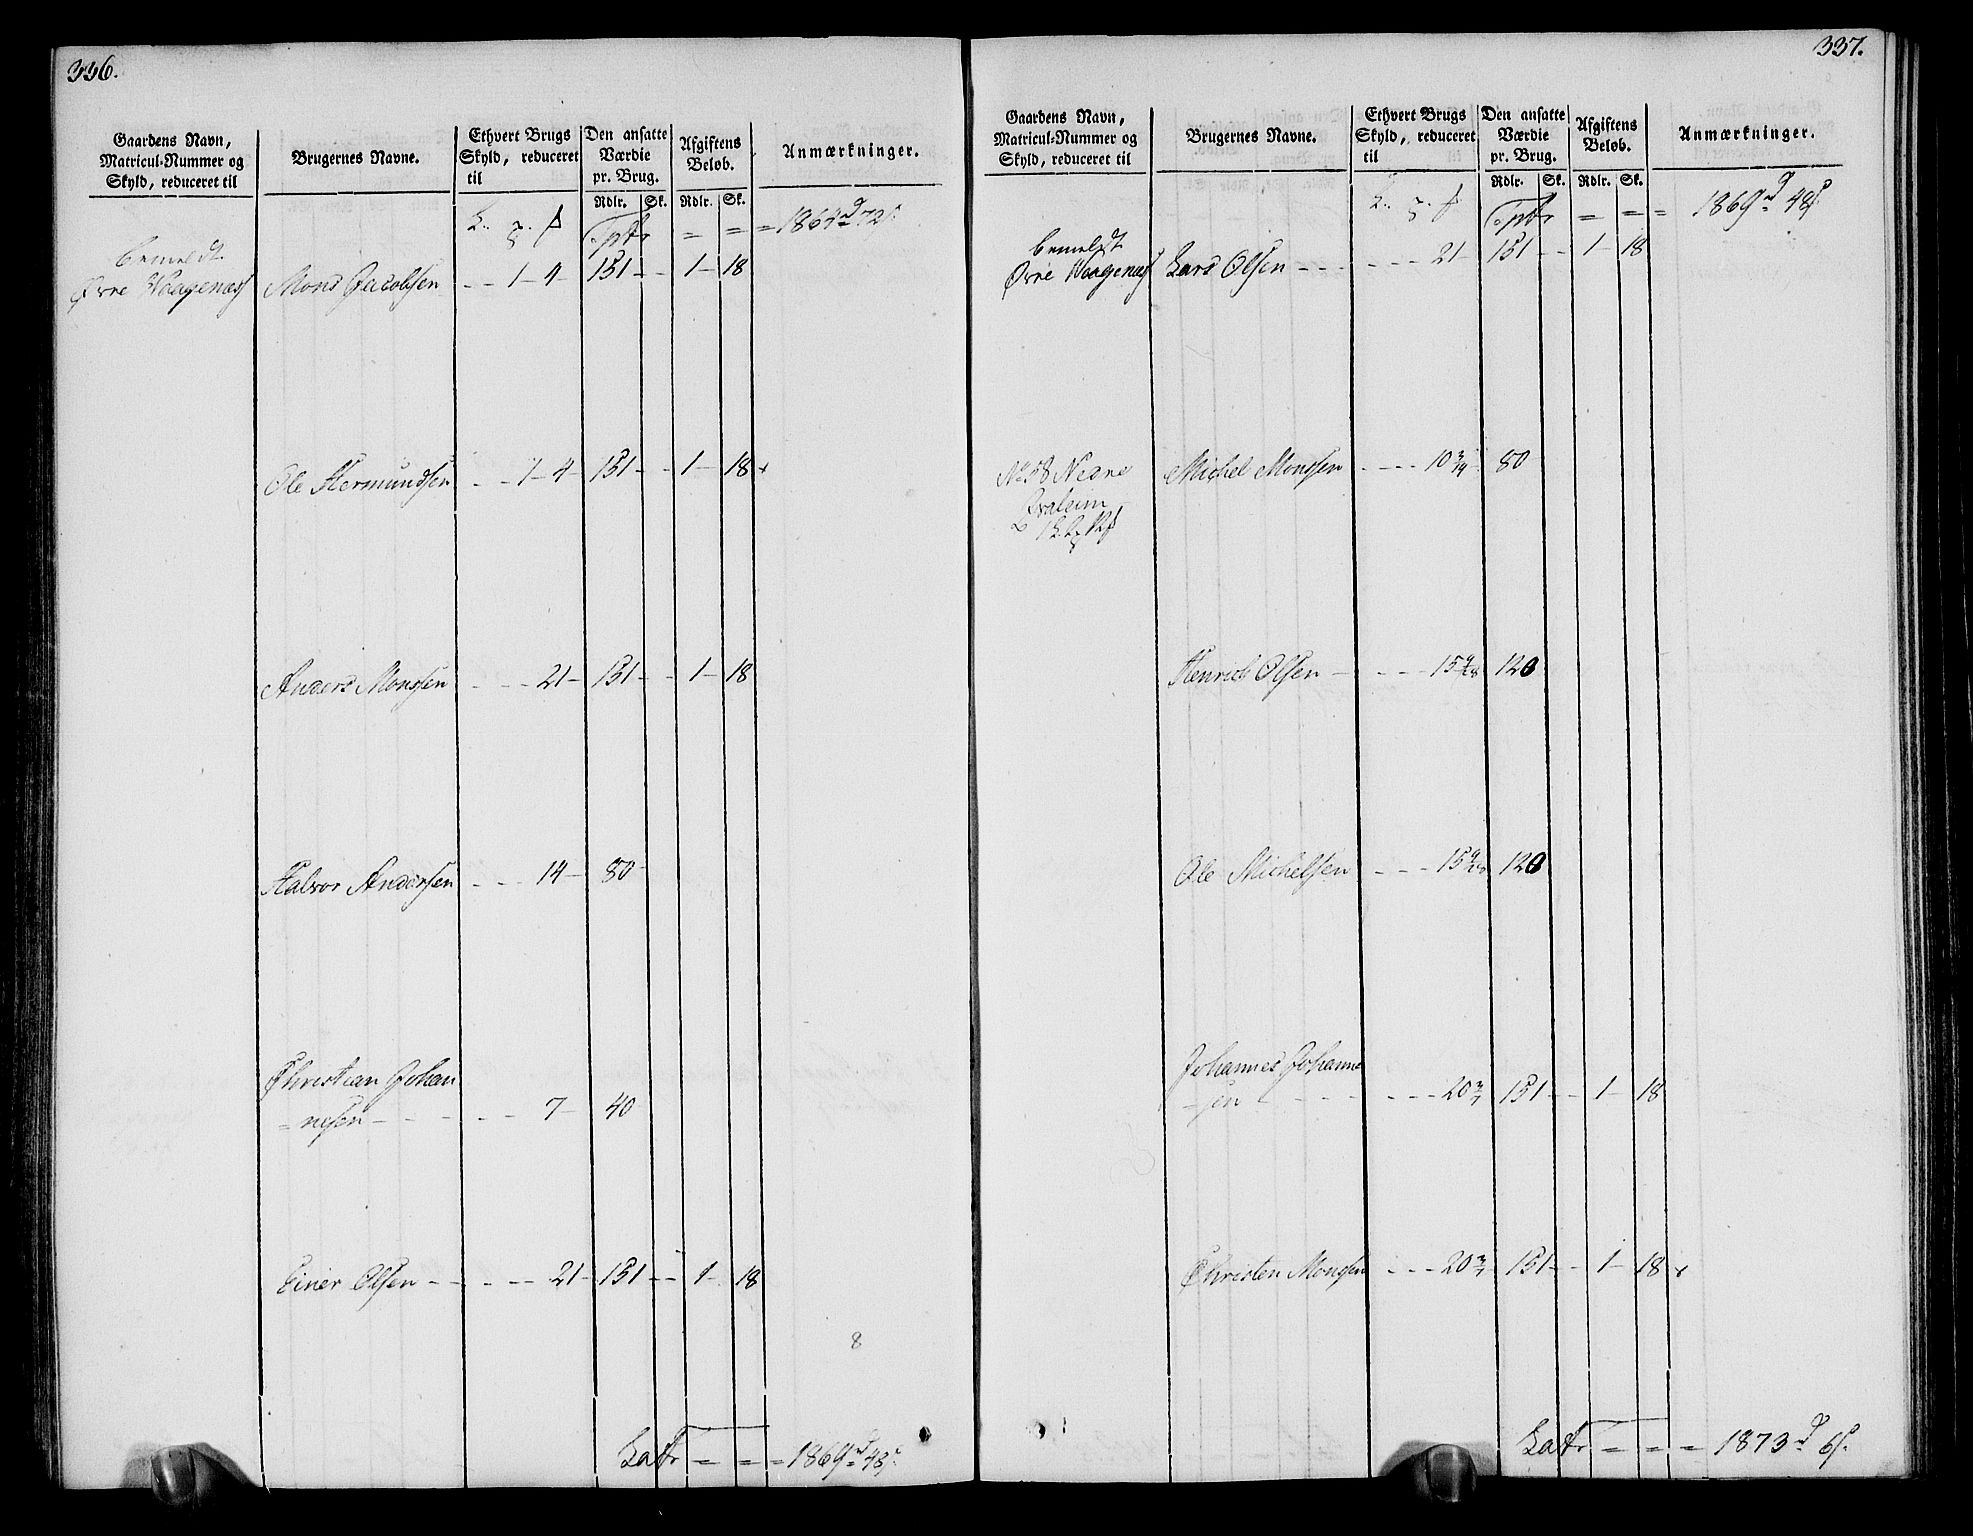 336.
Gaardens Navn, Matricul-Nummer og Skyld, reduceret til
Brugernes Navne.
Ethvert Brugs Skyld, reduceret til
Den ansatte Værdie pr. Brug.
Afgiftens Beløb.
Anmærkninger.
Rdlr. Sk. Rdlr. Sk.
Tptr = = = 1864 d 72 s.
bemeldt
Øvre Waagenæss Mons Jacobsen - - 1 - 4 - 151 - - 1 - 18
Ole Hermundsen - - 1 - 4 - 151 - - 1 - 18
Anders Monssen - - - 21 - 151 - - 1 - 18
Halvor Andersen - - - 14 - 80
Christian Johan
= nesen - - - - - 7 - 40
Einer Olsen - - - - - 21 - 151 - - 1 - 18
8
Latr = = = 1869 d 48 s.
337.
Gaardens Navn, Matricul-Nummer og Skyld, reduceret til
Brugernes Navne.
Ethvert Brugs Skyld, reduceret til
Den ansatte Værdie pr. Brug.
Afgiftens Beløb.
Anmærkninger.
Rdlr. Sk. Rdlr. Sk.
Tptr = = = 1869 d 48 s.
bemeldt
Øvre Waagenæss Lars Olsen - - - - - - 21 - 151 - - 1 - 18
No 58 Nedre Michel Monssen - - - - 10 3/14 80
Henrich Olsen - - - - 15 9/28 120
Ole Michelsen - - - 15 9/28 120
Johannes Johanne
- sen - - - - - - 20 3/7 151 - - 1 - 18
Christen Monssen - - - 20 3/7 151 - - 1 - 18
Latr = = = 1873 d 6 s.